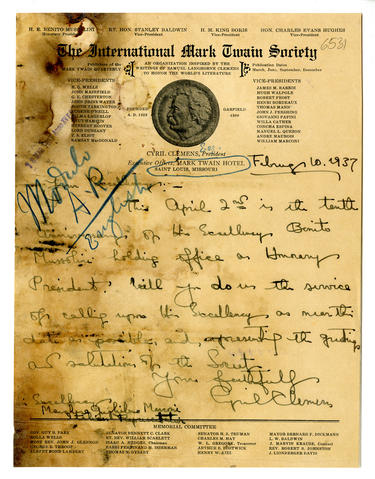 H. E. BENITO MUSSOLINI
Honorary President
RT. HON. STANLEY BALDWIN
Vice-President
H. M. KING BORIS
Vice-President
HON. CHARLES EVANS HUGHES
Vice-President
6531
The International Mark Twain Society
Publishers of the
MARK TWAIN QUARTERLY
AN ORGANIZATION INSPIRED BY THE
WRITINGS OF SAMUEL LANGHORNE CLEMENS
TO HONOR THE WORLD'S LITERATURE
Publication Dates
March, June, September, December
VICE-PRESIDENTS
H. G. WELLS
JOHN MASEFIELD
G. K. CHESTERTON
JOHN DRINKWATER
BOOTH TARKINGTON
SELMA LAGERLOF
KNUT HAMSUN
LORD DUNSANY
RAMSAY MACDONALD
FOUNDED
A. D. 1923
GARFIELD
4300
VICE-PRESIDENTS
JAMES M. BARRIE
HUGH WALPOLE
ROBERT FROST
HENRI BORDEAUX
THOMAS MANN
JOHN J. PERSHING
GIOVANNI PAPINI
WILLA CATHER
CONCHA ESPINA
MANUEL L. QUEZON
ANDRE MAUROIS
WILLIAM MARCONI
CYRIL CLEMENS, President
Executive Offices, MARK TWAIN HOTEL
SAINT LOUIS, MISSOURI
February 10, 1937
Modulo
A
English
This April 2nd is the tenth
anniversary of His Excellency Benito
Mussolini holding office as Honorary
President! Will you do us the service
of calling upon His Excellency as near this
date as possible, and expressing the greetings
and salutations of the Society
Yours faithfully
Cyril Clemens
MEMORIAL COMMITTEE
GOV. GUY B. PARK
ROLLA WELLS
MOST REV. JOHN J. GLENNON
GEORGE S. TERROOP
ALBERT BOND LAMBERT
SENATOR BENNETT C. CLARK
RT. REV. WILLIAM SCARLETT
ISAAC A. HEDGES, Chairman
RABBI FERDINAND M. ISSERMAN
SENATOR H. S. TRUMAN
CHARLES M. HAY
W. L. GREGORY, Treasurer
ARTHUR S. BOSTWICK
MAYOR BERNARD F. DICKMANN
L. W. BALDWIN
J. MARVIN KRAUSE, Counsel
REV. ROBERT S. JOHNSTON
J. LIONBERGER DAVIS